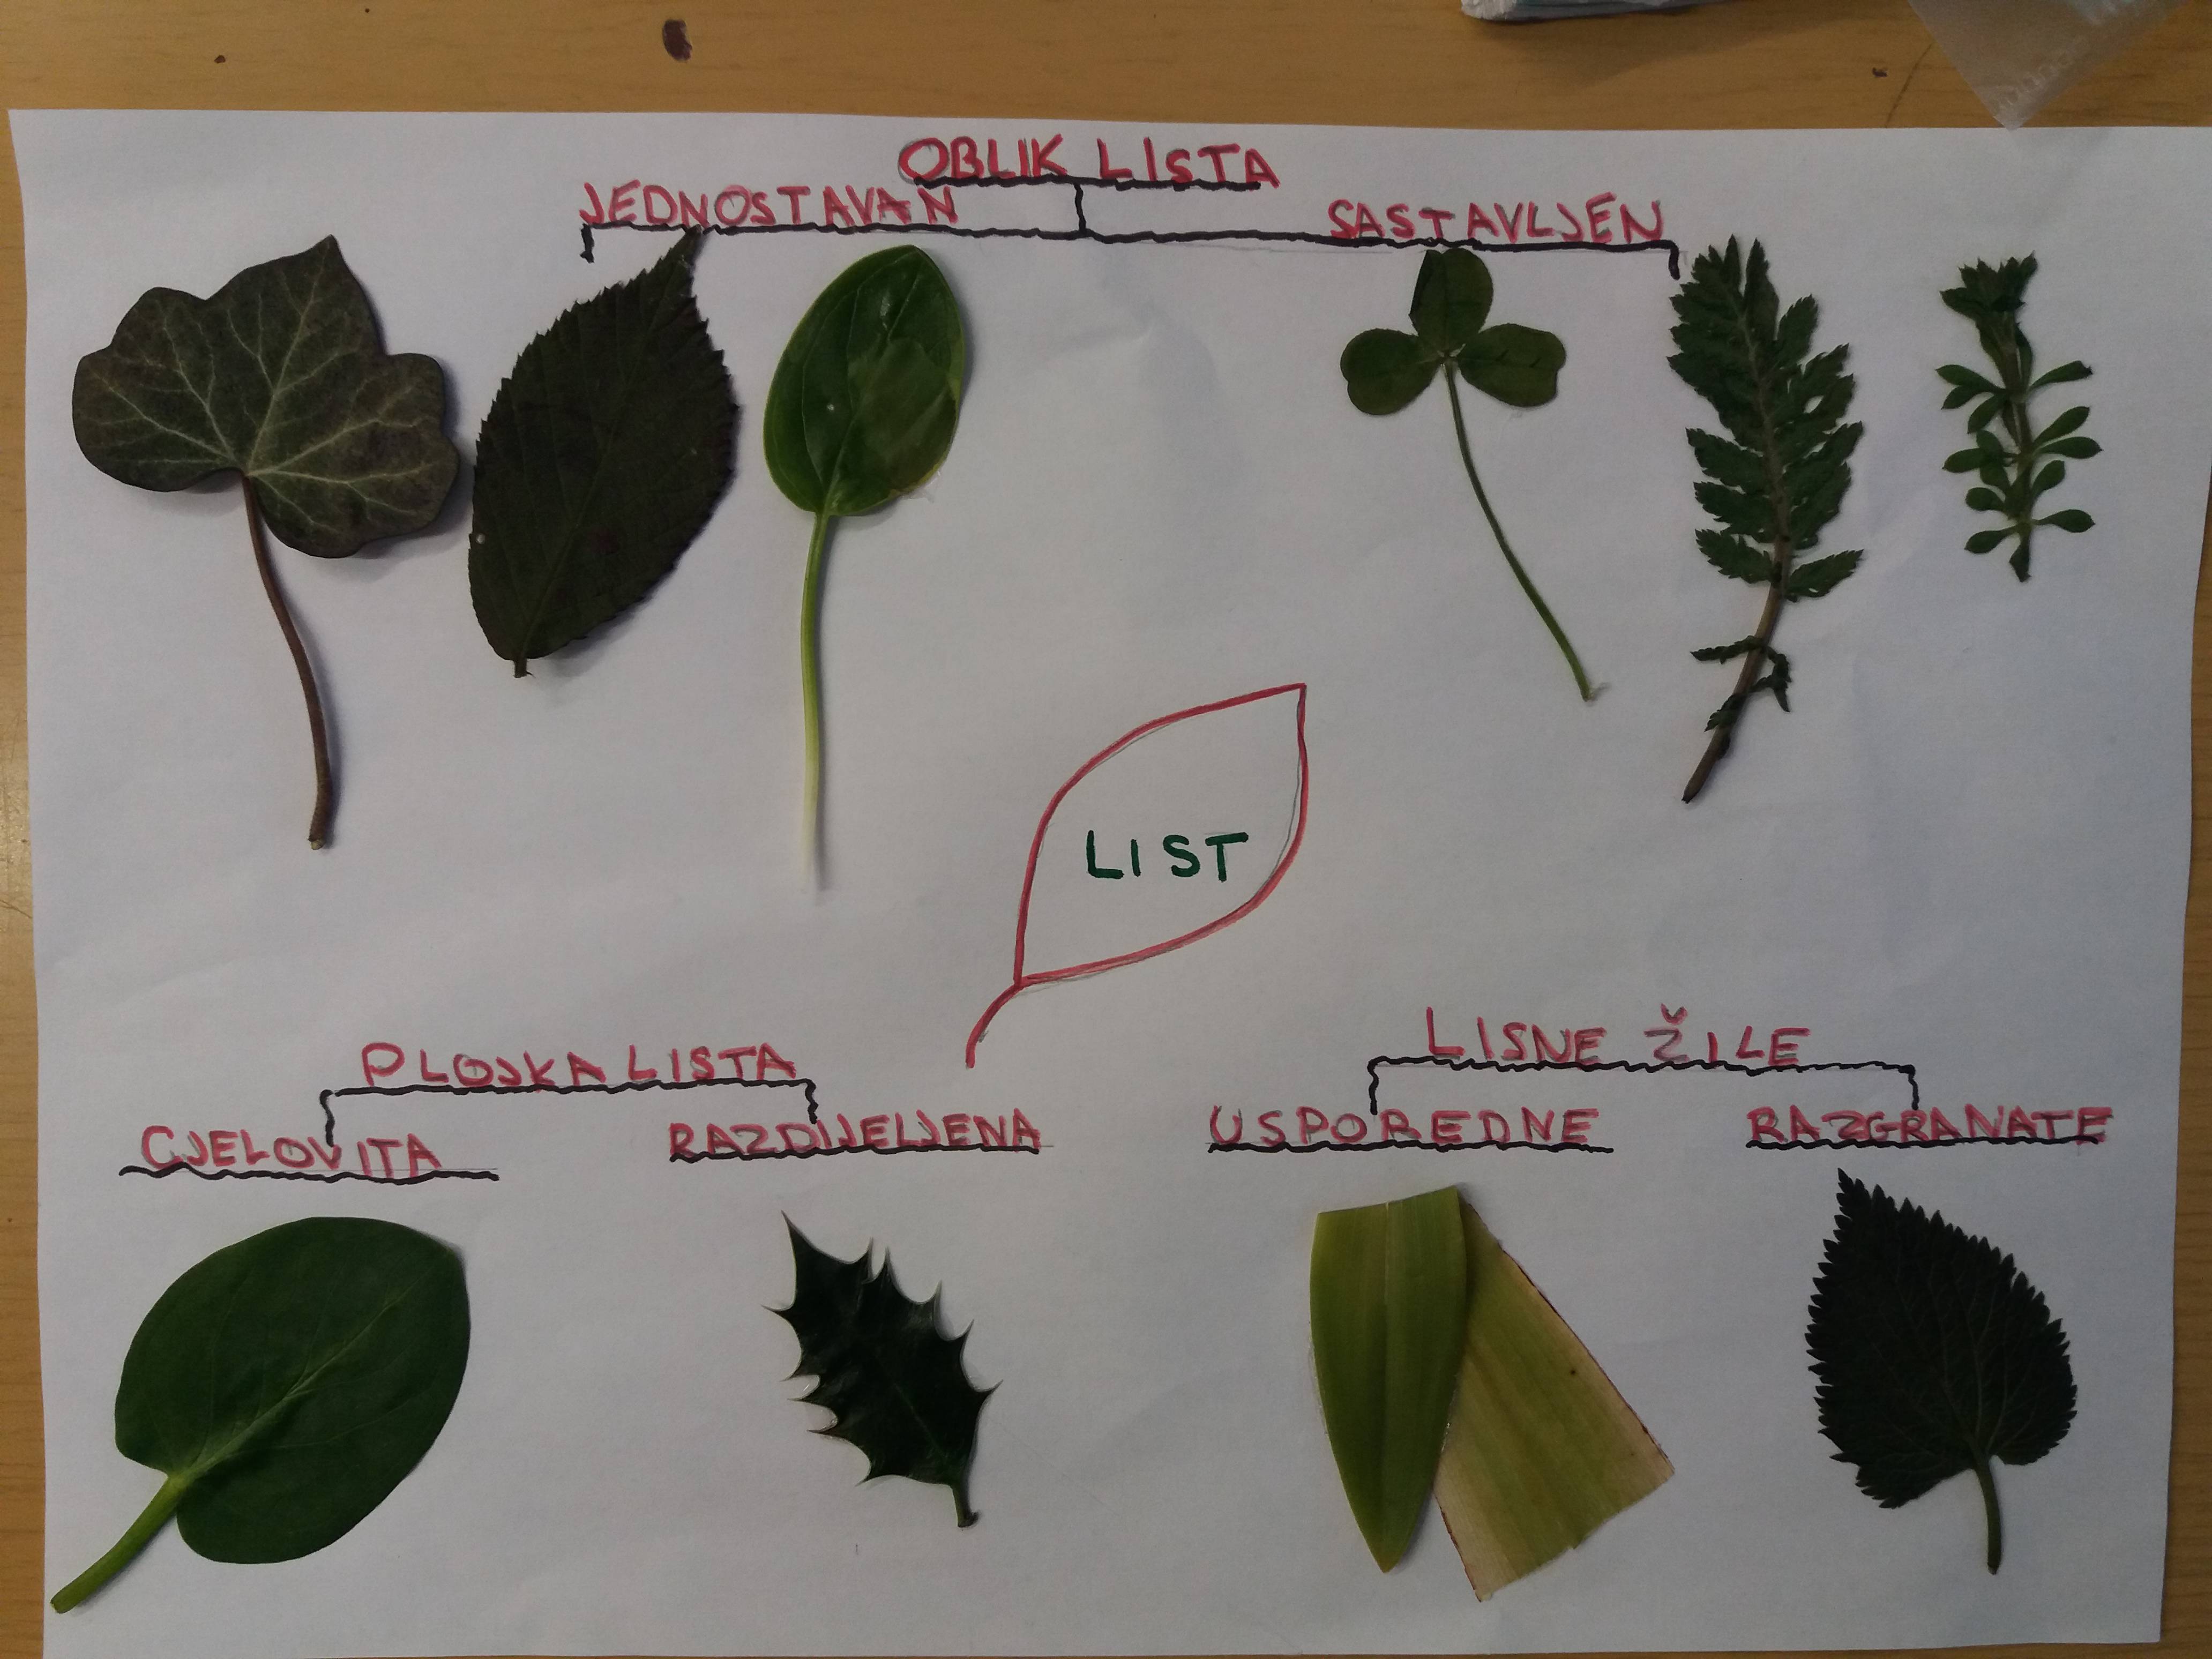 OBLIK LISTA
JEDNOSTAVAN
SASTAVLJEN
LIST
PLOJKA LISTA
CJELOVITA
RAZDIJELJENA
LISNE ŽILE
USPOREDNE
RAZGRANATE